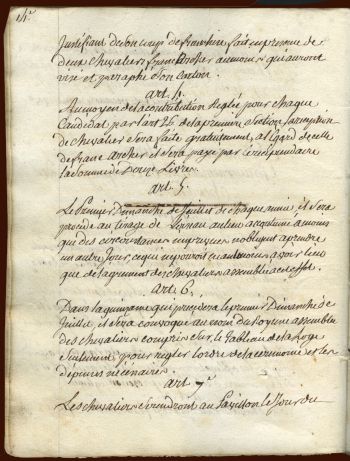 Justifiant de son coup de franchise fait en presence de
deux Chevaliers francs archer au moins qui auront
visé et paraphé son Carton.
art. 4.
Au moyen de la contribution Reglée pour chaque
Candidat par l'art 26 de la premiere Section, la reception
de Chevalier sera faite gratuitement, a l'égard de celle
de franc archer il sera payé par le récipiendaire
la somme de Douze Livres.
art. 5.
Le Premier Dimanche de Juillet de chaque année, il sera
procédé au tirage de l'oiseau au lieu accoutumé a moins
que des circonstances imprevues n'obligent a prendre
un autre Jour, ce qui ne pourra neanmoins avoir lieu
que de l'agrement des Chevaliers assemblés a cet effet.
art. 6.
Dans la quinzaine qui précédera le premier Dimanche de
Juillet, il sera convoqué au nom du Roy une assemblée
des Chevaliers compris sur le Tableau de la Loge
Seulement, pour regler l'ordre de la ceremonie et les
depenses nécenaires.
art 7.e
Les Chevaliers se rendront au Pavillon le Jour du